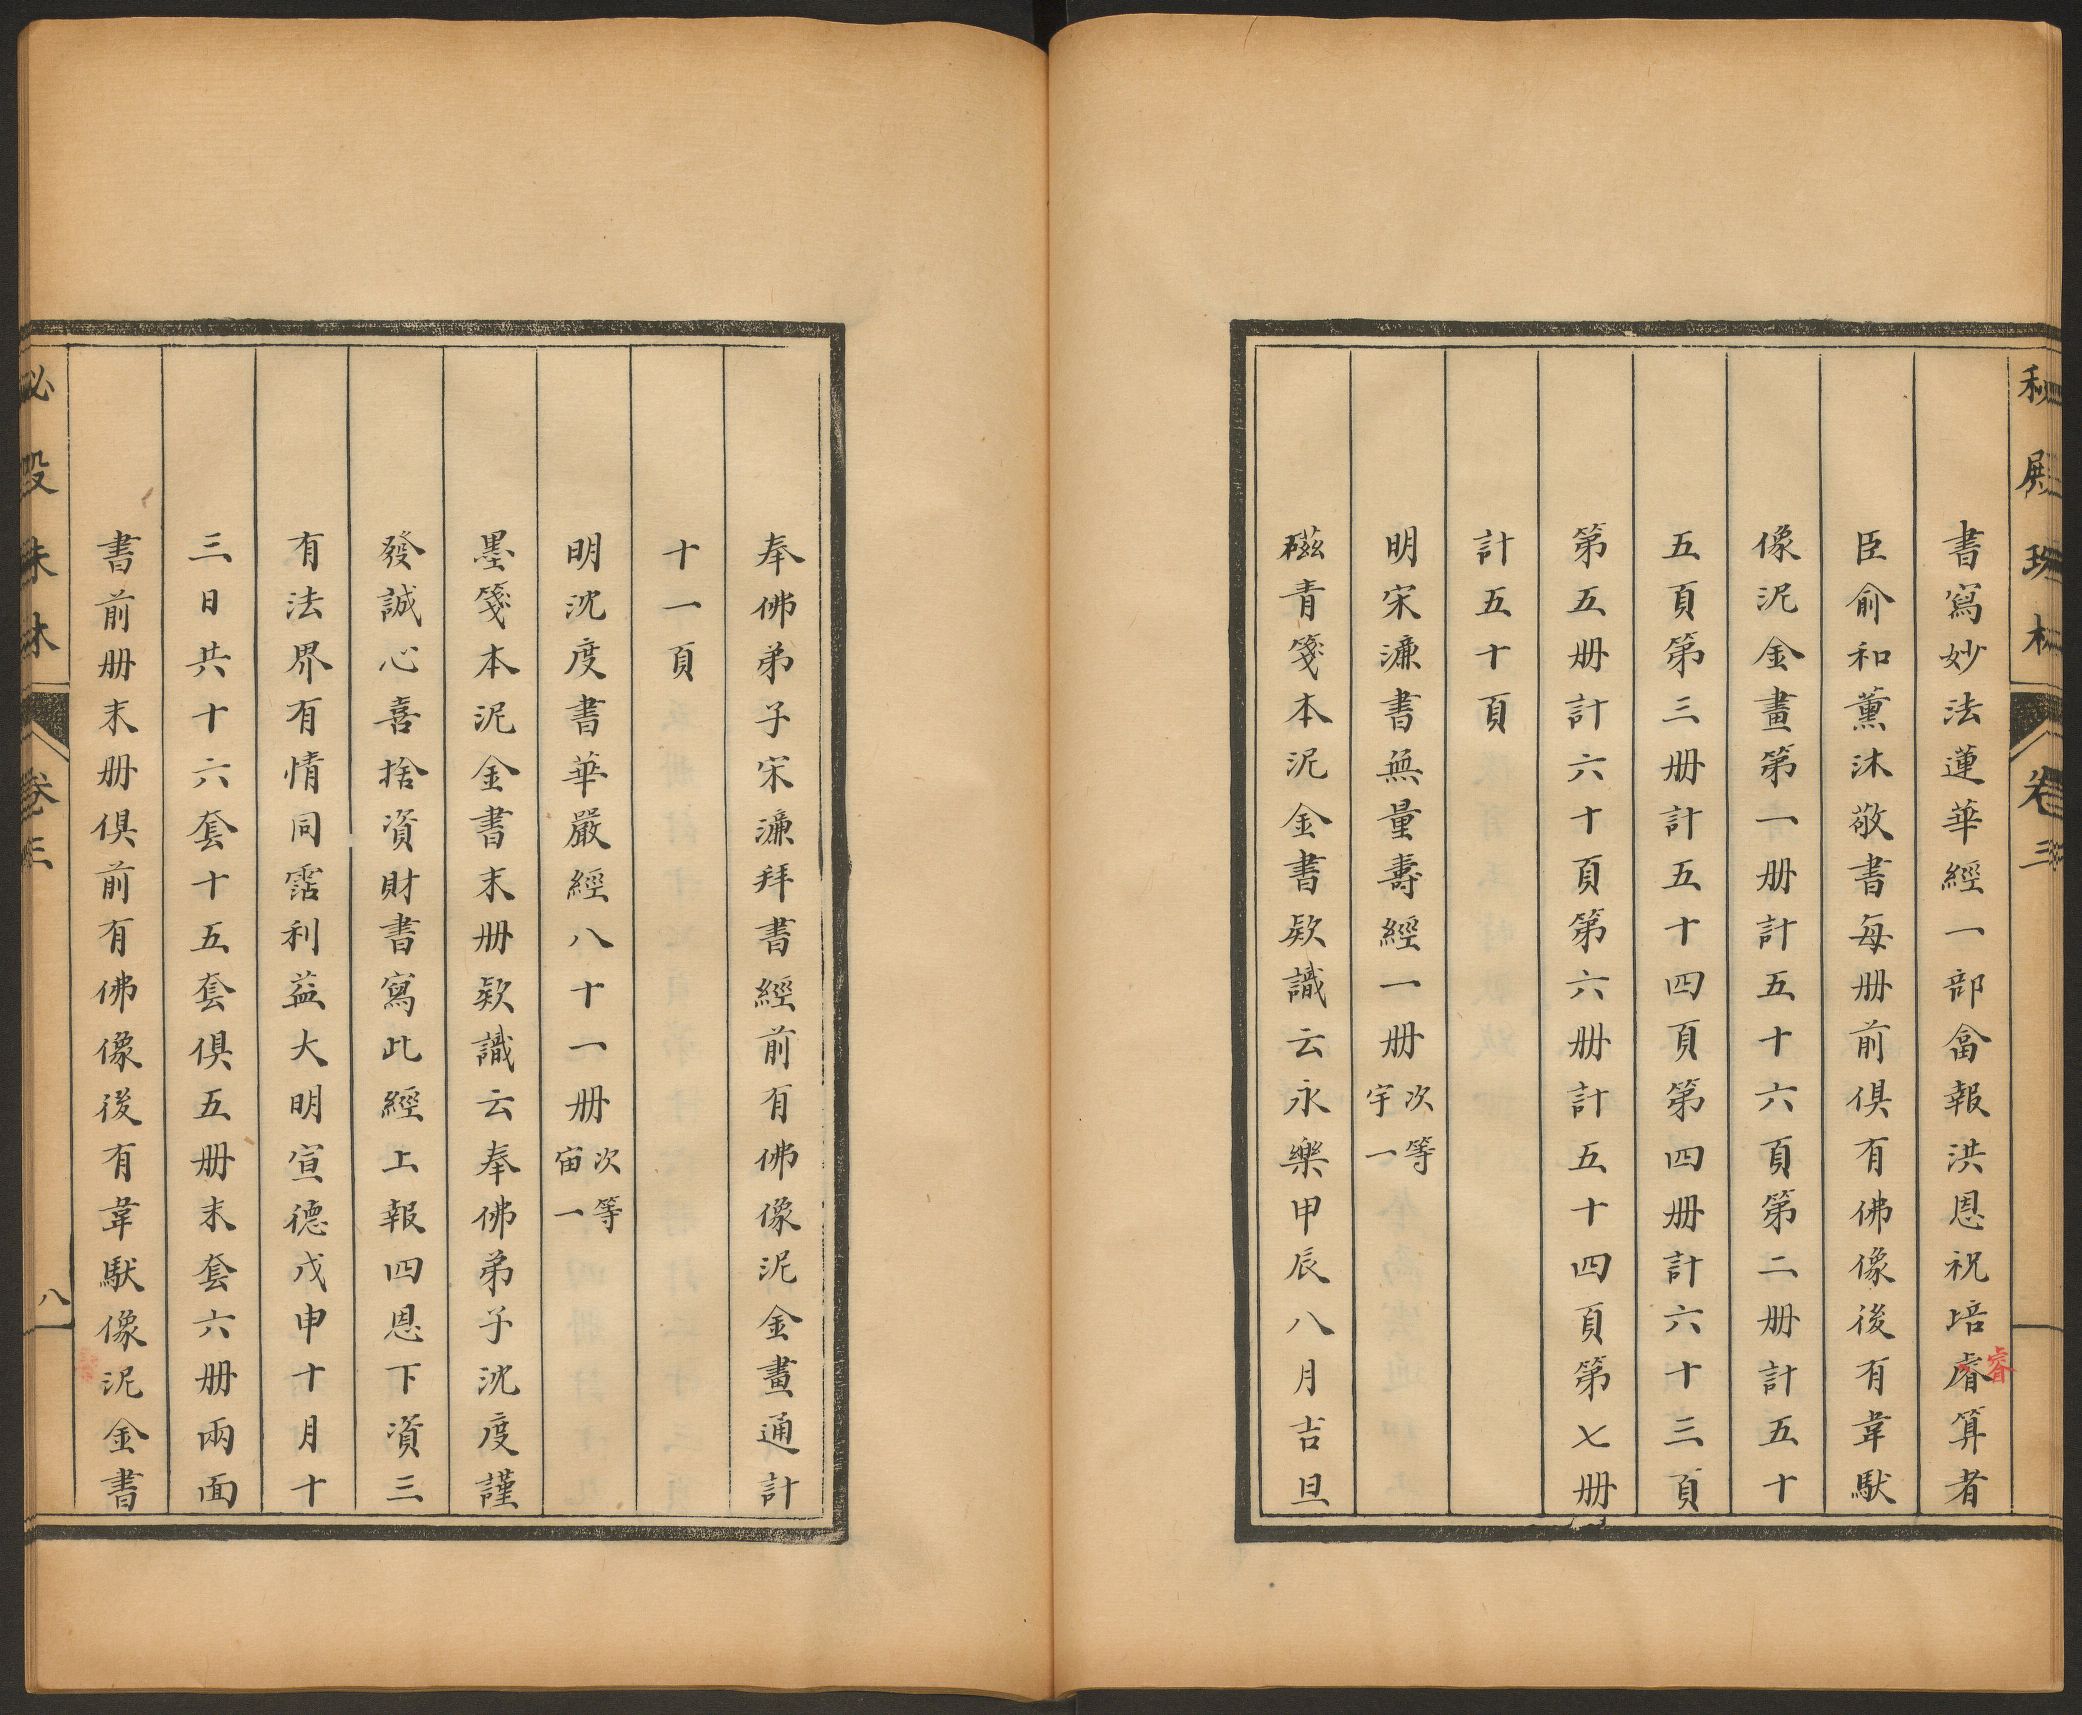 秘殿珠林
卷三
書寫妙法蓮華經一部畣報洪恩祝培㕡算者
睿
臣俞和薰沐敬書每册前俱有佛像後有韋馱
像泥金畫第一册計五十六頁第二册計五十
五頁第三册計五十四頁第四册計六十三頁
第五册計六十頁第六册計五十四頁第七册
計五十頁
明宋濂書無量壽經一册次等宇一
磁青箋本泥金書欵識云永樂甲辰八月吉旦
奉佛弟子宋濂拜書經前有佛像泥金畫通計
十一頁
明沈度書華嚴經八十一册次等宙一
墨箋本泥金書末册欵識云奉佛弟子沈度謹
發誠心喜捨資財書寫此經上報四恩下資三
有法界有情同霑利益大明宣德戊申十月十
三日共十六套十五套俱五册末套六册兩面
書前册末册俱前有佛像後有韋馱像泥金書
秘殿珠林
卷三
八